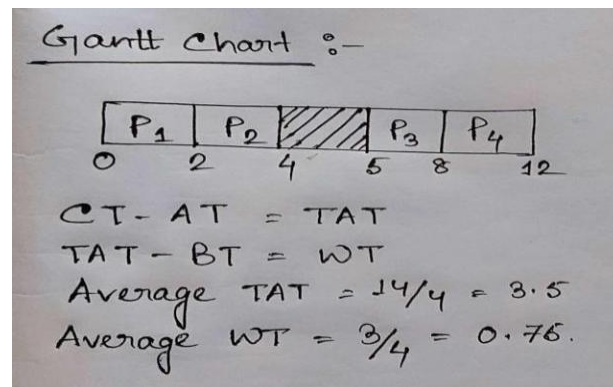 Gantt Chart :-
P1 P2 P3 P4
0 2 4 5 8 12
CT - AT = TAT
TAT - BT = WT
Average TAT = 14/4 = 3.5
Average WT = 3/4 = 0.75.